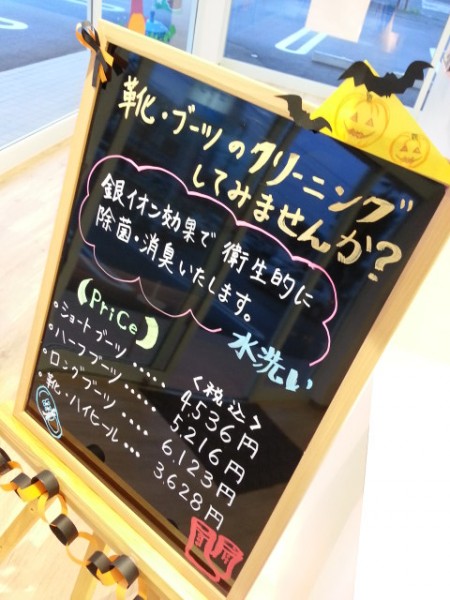 靴・ブーツのクリーニング
してみませんか?
銀イオン効果で衛生的に
除菌・消臭いたします。
水洗い
(PriCe)
<税込>
・ショートブーツ ‥‥ 4,536円
・ハーフブーツ ‥‥ 5,216円
・ロングブーツ ‥‥ 6,123円
・靴・ハイヒール ‥‥ 3,628円